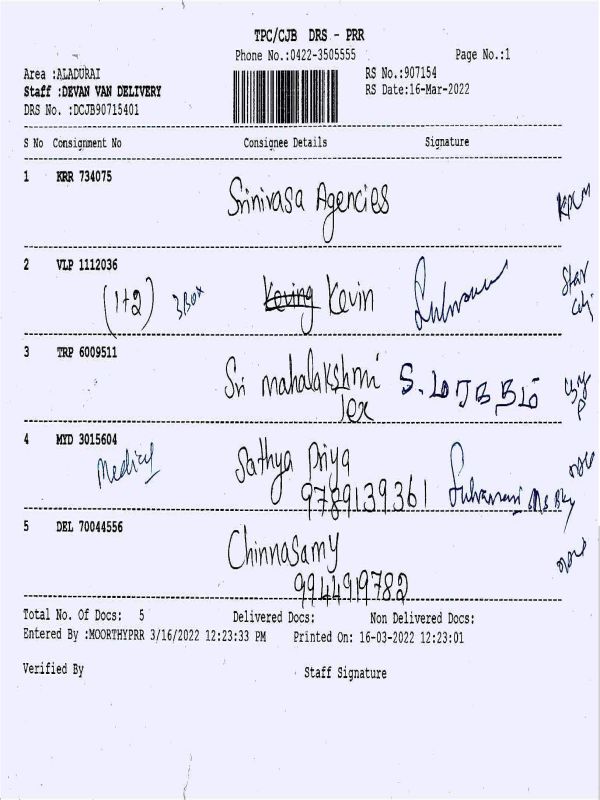 TPC/CJB DRS - PRR
Phone No.:0422-3505555 Page No.:1
Area :ALADURAI RS No.:907154
Staff :DEVAN VAN DELIVERY RS Date:16-Mar-2022
DRS No. :DCJB90715401
S No Consignment No Consignee Details Signature
1 KRR 734075
Srinivasa Agencies
2 VLP 1112036
(1+2) 3Box Kevin
Star
3 TRP 6009511
Sri mahalakshmi
Tex
4 MYD 3015604
Medical Sathya Priya
9789139361
5 DEL 70044556
Chinnasamy
9944919782
Total No. Of Docs: 5 Delivered Docs: Non Delivered Docs:
Entered By :MOORTHYPRR 3/16/2022 12:23:33 PM Printed On: 16-03-2022 12:23:01
Verified By Staff Signature